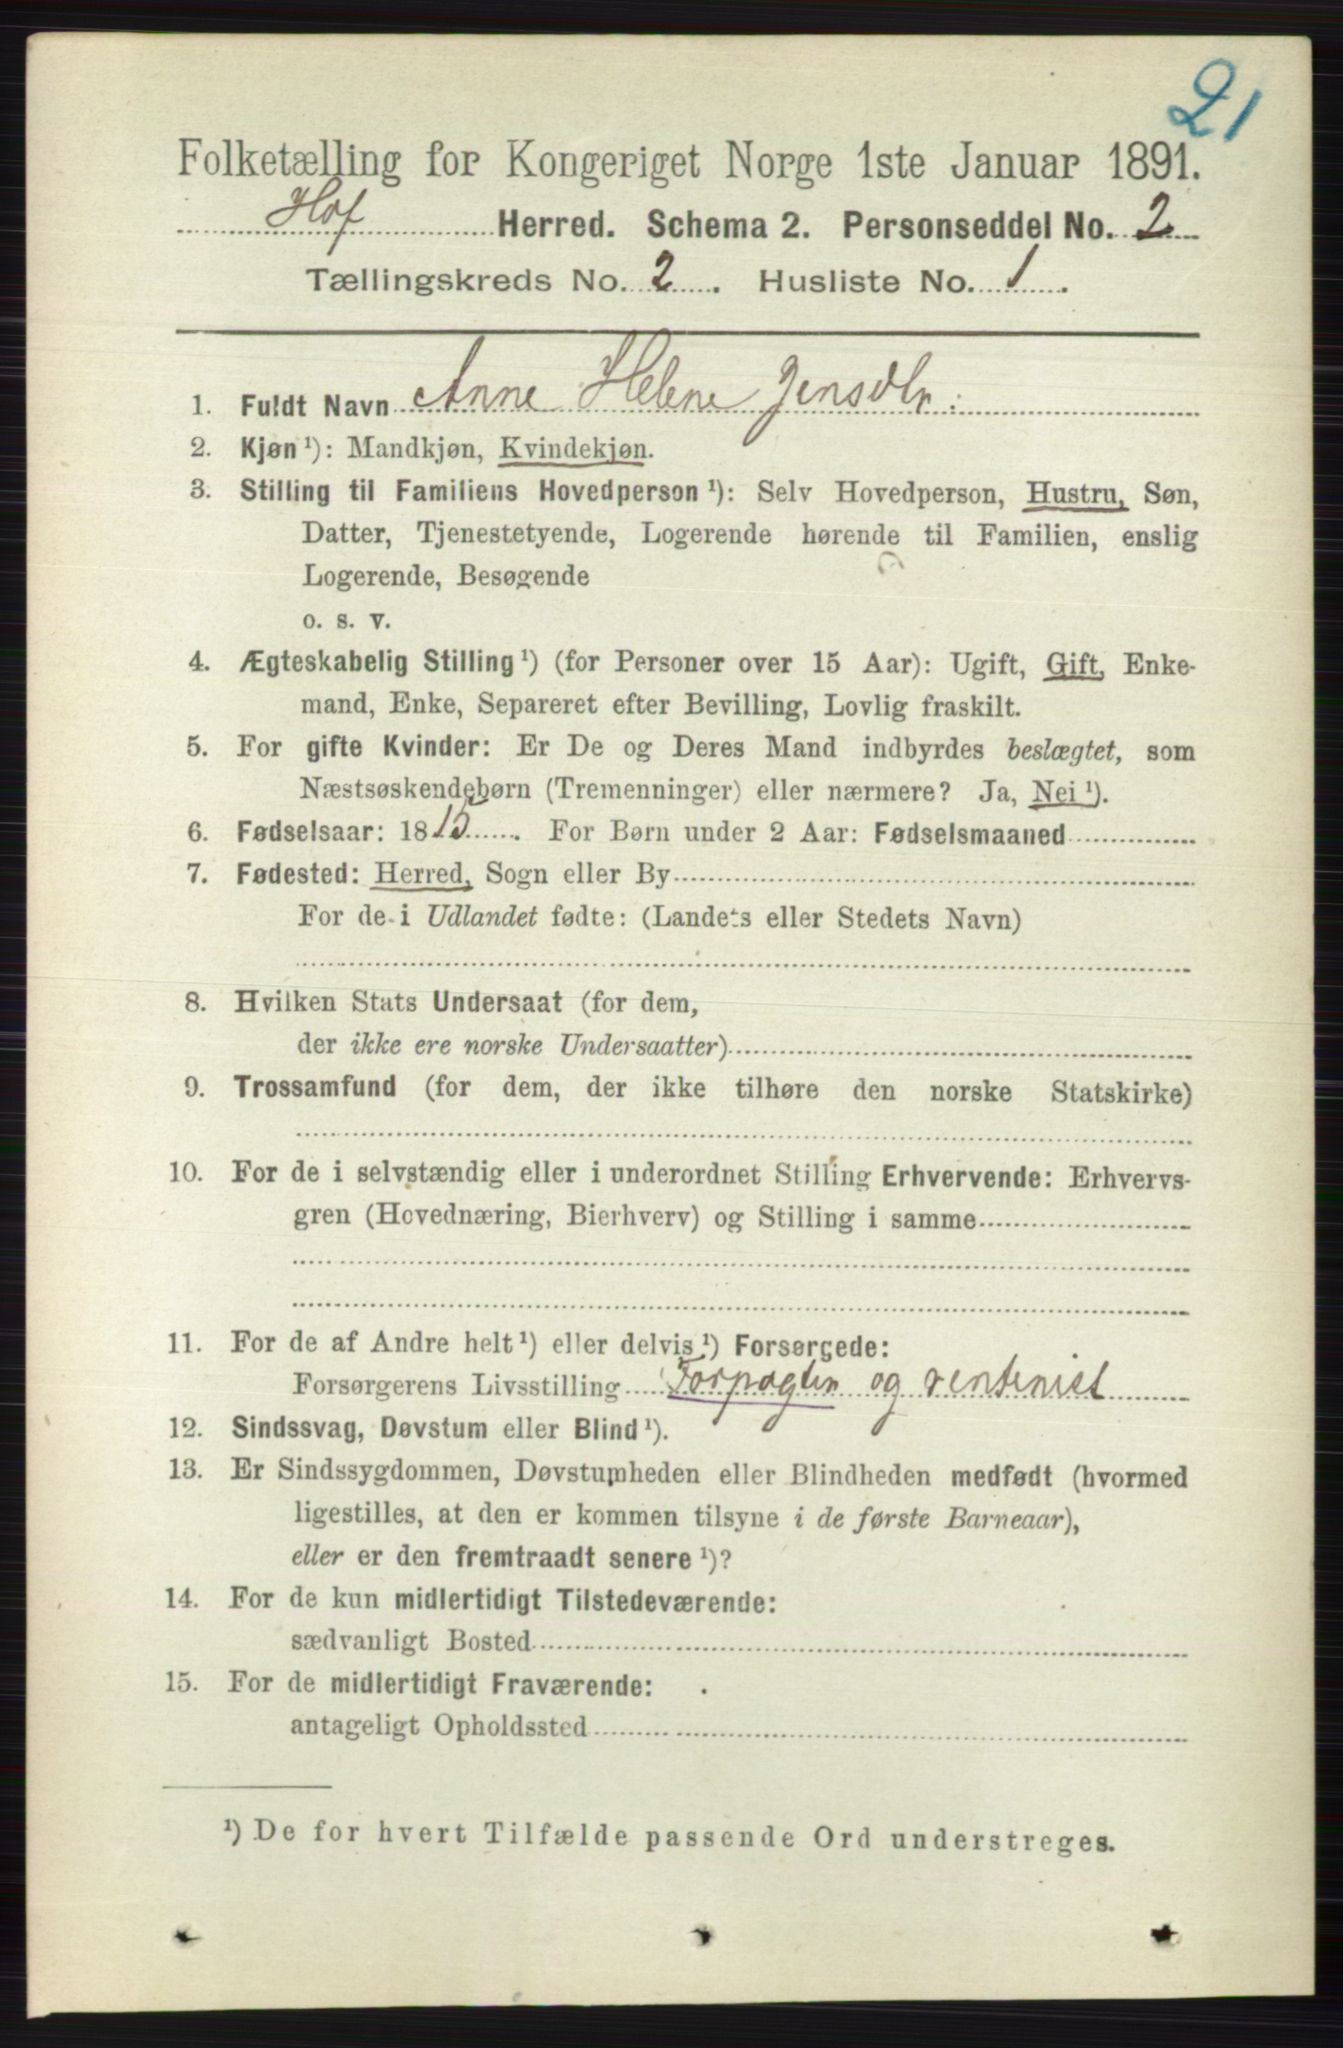 21
Folketælling for Kongeriget Norge 1ste Januar 1891.
Hof Herred. Schema 2. Personseddel No. 2
Tællingskreds No. 2. Husliste No. 1.
1. Fuldt Navn Anne Helene Jensdtr.
2. Kjøn¹): Mandkjøn, Kvindekjøn.
3. Stilling til Familiens Hovedperson¹): Selv Hovedperson, Hustru, Søn,
Datter, Tjenestetyende, Logerende hørende til Familien, enslig
Logerende, Besøgende
o. s. v.
4. Ægteskabelig Stilling¹) (for Personer over 15 Aar): Ugift, Gift, Enke-
mand, Enke, Separeret efter Bevilling, Lovlig fraskilt.
5. For gifte Kvinder: Er De og Deres Mand indbyrdes beslægtet, som
Næstsøskendebørn (Tremenninger) eller nærmere? Ja, Nei¹).
6. Fødselsaar: 1815. For Børn under 2 Aar: Fødselsmaaned
7. Fødested: Herred, Sogn eller By
For de i Udlandet fødte: (Landets eller Stedets Navn)
8. Hvilken Stats Undersaat (for dem,
der ikke ere norske Undersaatter)
9. Trossamfund (for dem, der ikke tilhøre den norske Statskirke)
10. For de i selvstændig eller i underordnet Stilling Erhvervende: Erhvervs-
gren (Hovednæring, Bierhverv) og Stilling i samme
11. For de af Andre helt¹) eller delvis¹) Forsørgede:
Forsørgerens Livsstilling Forpagter og rentenist
12. Sindssvag, Døvstum eller Blind¹).
13. Er Sindssygdommen, Døvstumheden eller Blindheden medfødt (hvormed
ligestilles, at den er kommen tilsyne i de første Barneaar),
eller er den fremtraadt senere¹)?
14. For de kun midlertidigt Tilstedeværende:
sædvanligt Bosted
15. For de midlertidigt Fraværende:
antageligt Opholdssted
¹) De for hvert Tilfælde passende Ord understreges.